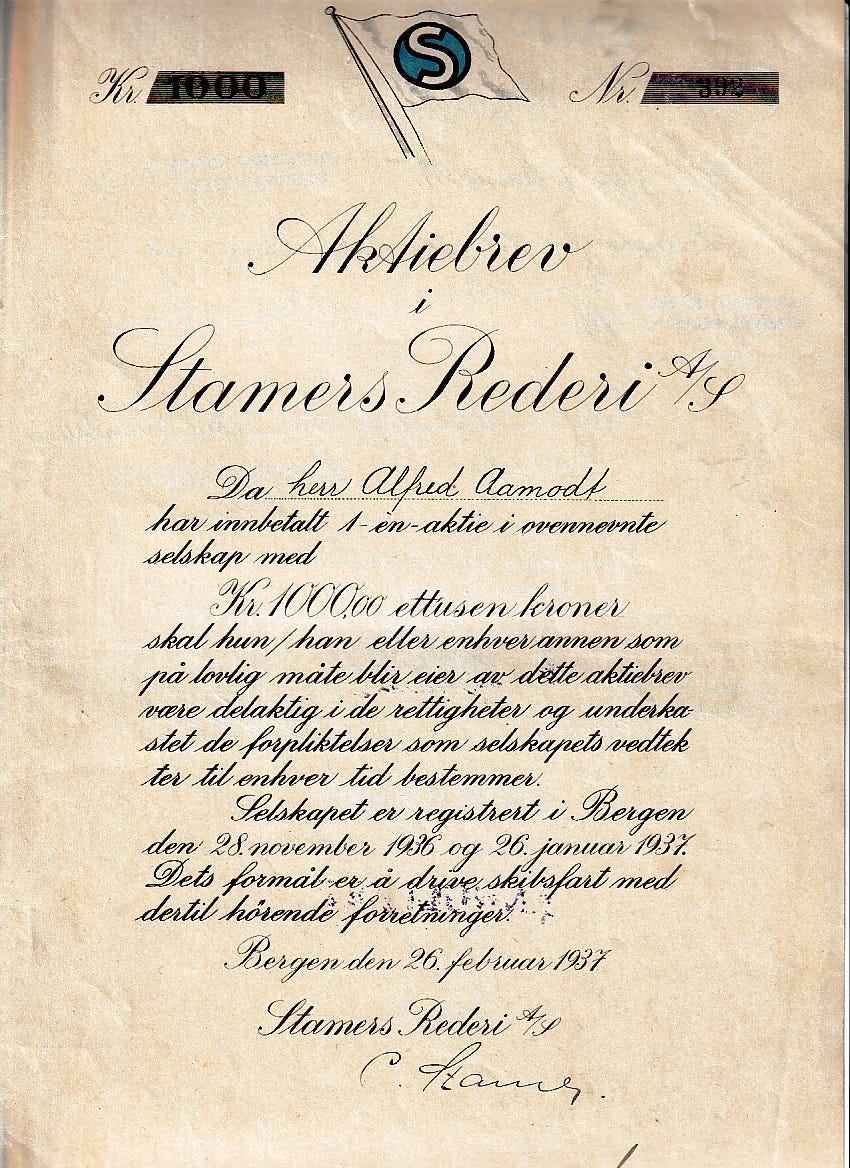 S
Kr. 1000
Nr. 392
Aktiebrev
i
Stamers Rederi A/S
Da herr Alfred Aamodt
har innbetalt 1-én-aktie i ovennevnte
selskap med
Kr. 1000,00 ettusen kroner
skal hun/han eller enhver annen som
på lovlig måte blir eier av dette aktiebrev
være delaktig i de rettigheter og underka-
stet de forpliktelser som selskapets vedtek
ter til enhver tid bestemmer.
Selskapet er registrert i Bergen
den 28. november 1936 og 26. januar 1937.
Dets formål er å drive skibsfart med
dertil hörende forretninger.
Bergen den 26. februar 1937
Stamers Rederi A/S
C. Stamer.